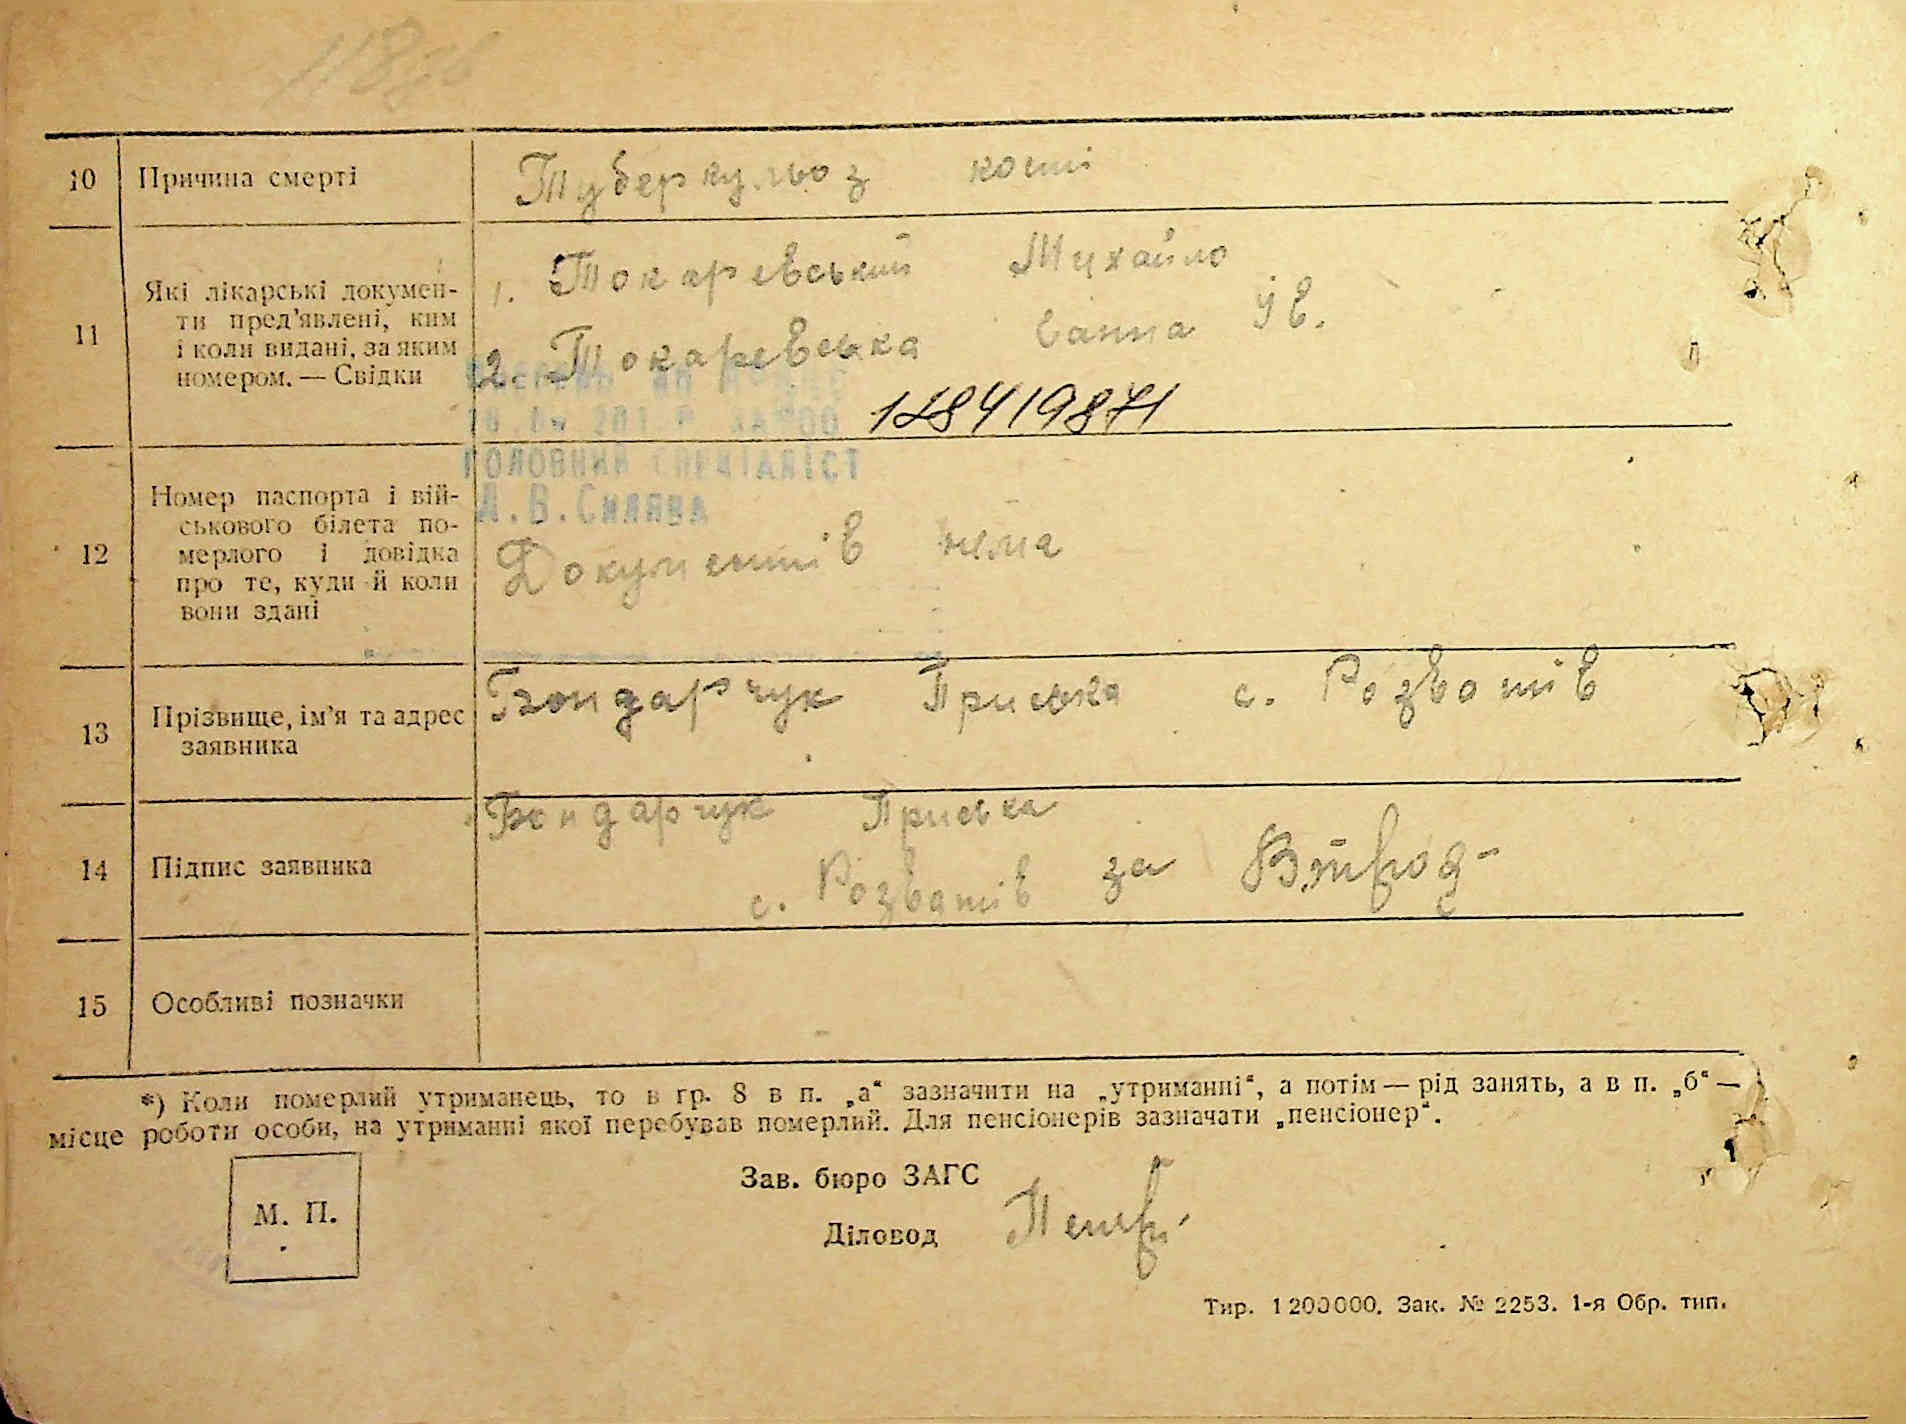 10 Причина смерті Туберкульоз кості
11 Які лікарські документи пред'явлені, ким і коли видані, за яким номером. — Свідки
1. Токаревський Михайло
2. Токаревська Ганна Ів.
ГОЛОВНИЙ СПЕЦІАЛІСТ
12 Номер паспорта і вій-
ськового білета по-
мерлого і довідка
про те, куди й коли
вони здані
Документів нема
13 Прізвище, ім'я та адрес
заявника
Бондарчук Приська с. Розватів
14 Підпис заявника
Бондарчук Приська
с. Розватів за
15 Особливі позначки
*) Коли померлий утриманець, то в гр. 8 в п. „а“ зазначити на „утриманні“, а потім — рід занять, а в п. „б“ —
місце роботи особи, на утриманні якої перебував померлий. Для пенсіонерів зазначати „пенсіонер“.
М. П.
Зав. бюро ЗАГС
Діловод
Тир. 1200000. Зак. № 2253. 1-я Обр. тип.